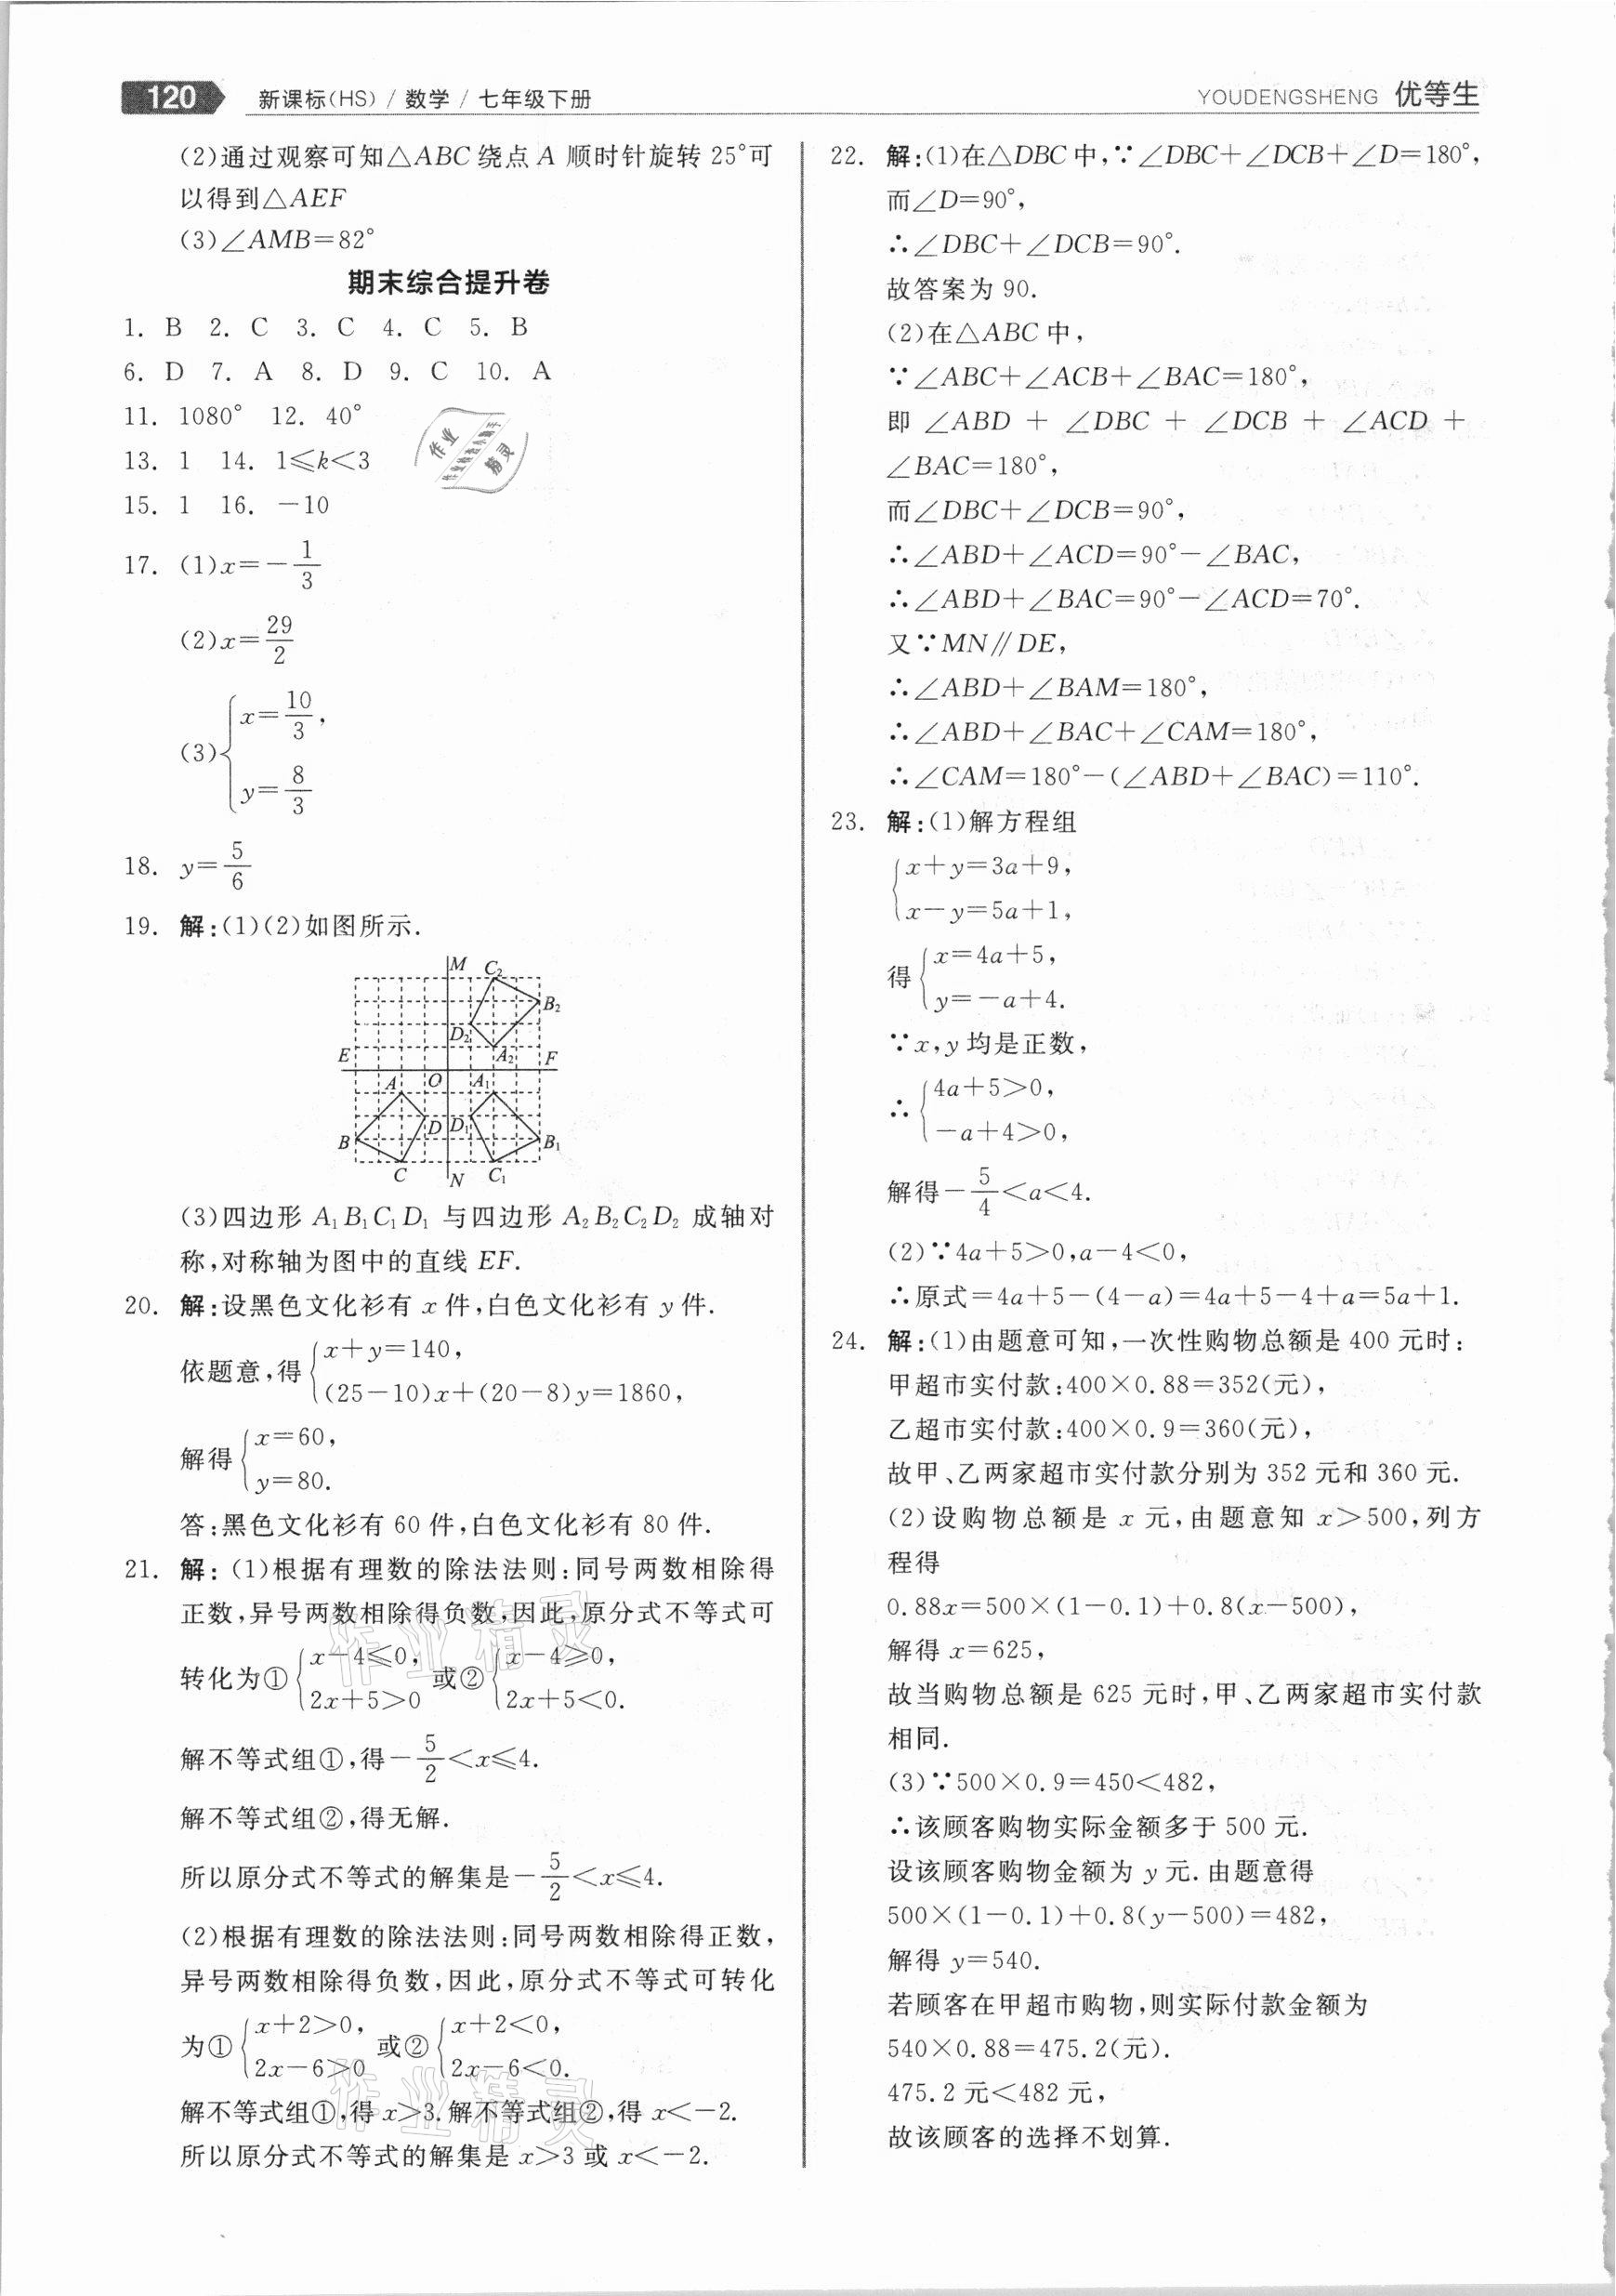 120 新课标(HS) / 数学 / 七年级下册
YOUDENGSHENG 优等生
(2)通过观察可知△ABC绕点A 顺时针旋转25°可
以得到△AEF
(3)∠AMB=82°
期末综合提升卷
1. B 2. C 3. C 4. C 5. B
6. D 7. A 8. D 9. C 10. A
11. 1080° 12. 40°
13. 1 14. 1⩽k<3
15. 1 16. −10
17. (1)x=−1/3
(2)x=29/2
(3){x=10/3,
y=8/3
18. y=5/6
19. 解:(1)(2)如图所示.
M C₂
B₂
D₂
E A₂ F
A O A₁
B D D₁ B₁
C N C₁
(3)四边形 A₁B₁C₁D₁ 与四边形 A₂B₂C₂D₂ 成轴对
称,对称轴为图中的直线 EF.
20. 解:设黑色文化衫有 x 件,白色文化衫有 y 件.
依题意,得{x+y=140,
(25−10)x+(20−8)y=1860,
解得{x=60,
y=80.
答:黑色文化衫有 60 件,白色文化衫有 80 件.
21. 解: (1)根据有理数的除法法则:同号两数相除得
正数,异号两数相除得负数,因此,原分式不等式可
转化为①{x−4⩽0, 2x+5>0 或②{x−4⩾0, 2x+5<0.
解不等式组①,得−5/2<x⩽4.
解不等式组②,得无解.
所以原分式不等式的解集是−5/2<x⩽4.
(2)根据有理数的除法法则:同号两数相除得正数,
异号两数相除得负数,因此,原分式不等式可转化
为①{x+2>0, 2x−6>0 或②{x+2<0, 2x−6<0.
解不等式组①,得 x>3.解不等式组②,得 x<−2.
所以原分式不等式的解集是 x>3 或 x<−2.
22. 解:(1)在△DBC中,∵∠DBC+∠DCB+∠D=180°,
而∠D=90°,
∴∠DBC+∠DCB=90°.
故答案为 90.
(2)在△ABC 中,
∵∠ABC+∠ACB+∠BAC=180°,
即 ∠ABD + ∠DBC + ∠DCB + ∠ACD +
∠BAC=180°,
而∠DBC+∠DCB=90°,
∴∠ABD+∠ACD=90°−∠BAC,
∴∠ABD+∠BAC=90°−∠ACD=70°.
又∵MN∥DE,
∴∠ABD+∠BAM=180°,
∴∠ABD+∠BAC+∠CAM=180°,
∴∠CAM=180°−(∠ABD+∠BAC)=110°.
23. 解:(1)解方程组
{x+y=3a+9,
x−y=5a+1,
得{x=4a+5,
y=−a+4.
∵x,y 均是正数,
∴{4a+5>0,
−a+4>0,
解得−5/4<a<4.
(2)∵4a+5>0,a−4<0,
∴原式=4a+5−(4−a)=4a+5−4+a=5a+1.
24. 解:(1)由题意可知,一次性购物总额是 400 元时:
甲超市实付款:400×0.88=352(元),
乙超市实付款:400×0.9=360(元),
故甲、乙两家超市实付款分别为 352 元和 360 元.
(2)设购物总额是 x 元,由题意知 x>500,列方
程得
0.88x=500×(1−0.1)+0.8(x−500),
解得 x=625,
故当购物总额是 625 元时,甲、乙两家超市实付款
相同.
(3)∵500×0.9=450<482,
∴该顾客购物实际金额多于 500 元.
设该顾客购物金额为 y 元.由题意得
500×(1−0.1)+0.8(y−500)=482,
解得 y=540.
若顾客在甲超市购物,则实际付款金额为
540×0.88=475.2(元).
475.2 元<482 元,
故该顾客的选择不划算.
作业精灵
作业精灵